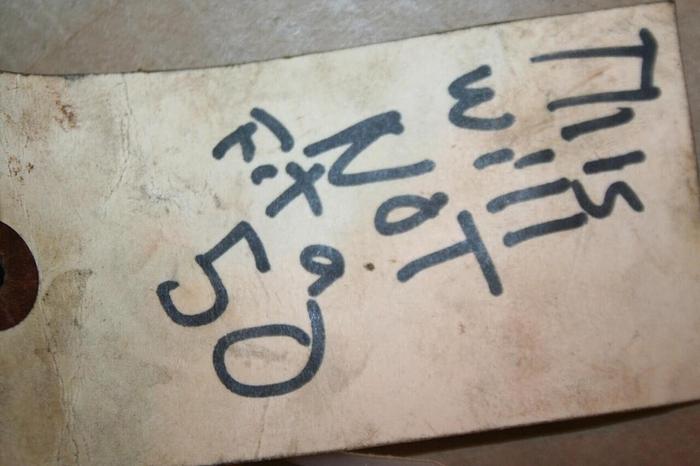 This
will
NOT
Fix a
50